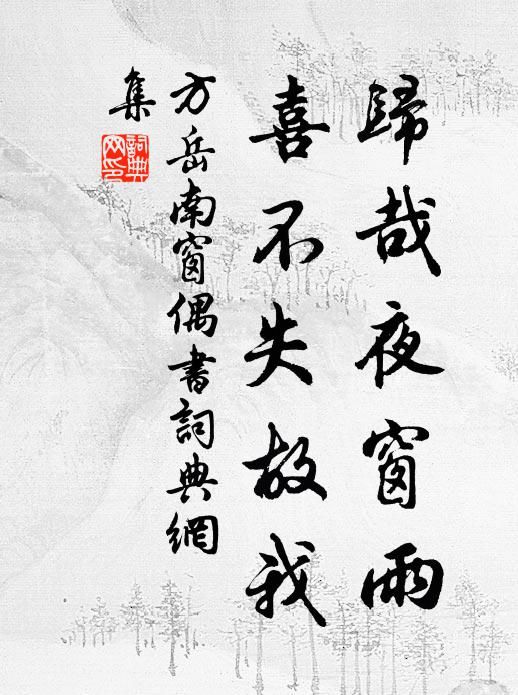 歸哉夜窗雨
喜不失故我
方岳南窗偶書詞典網
集
詞典
网印